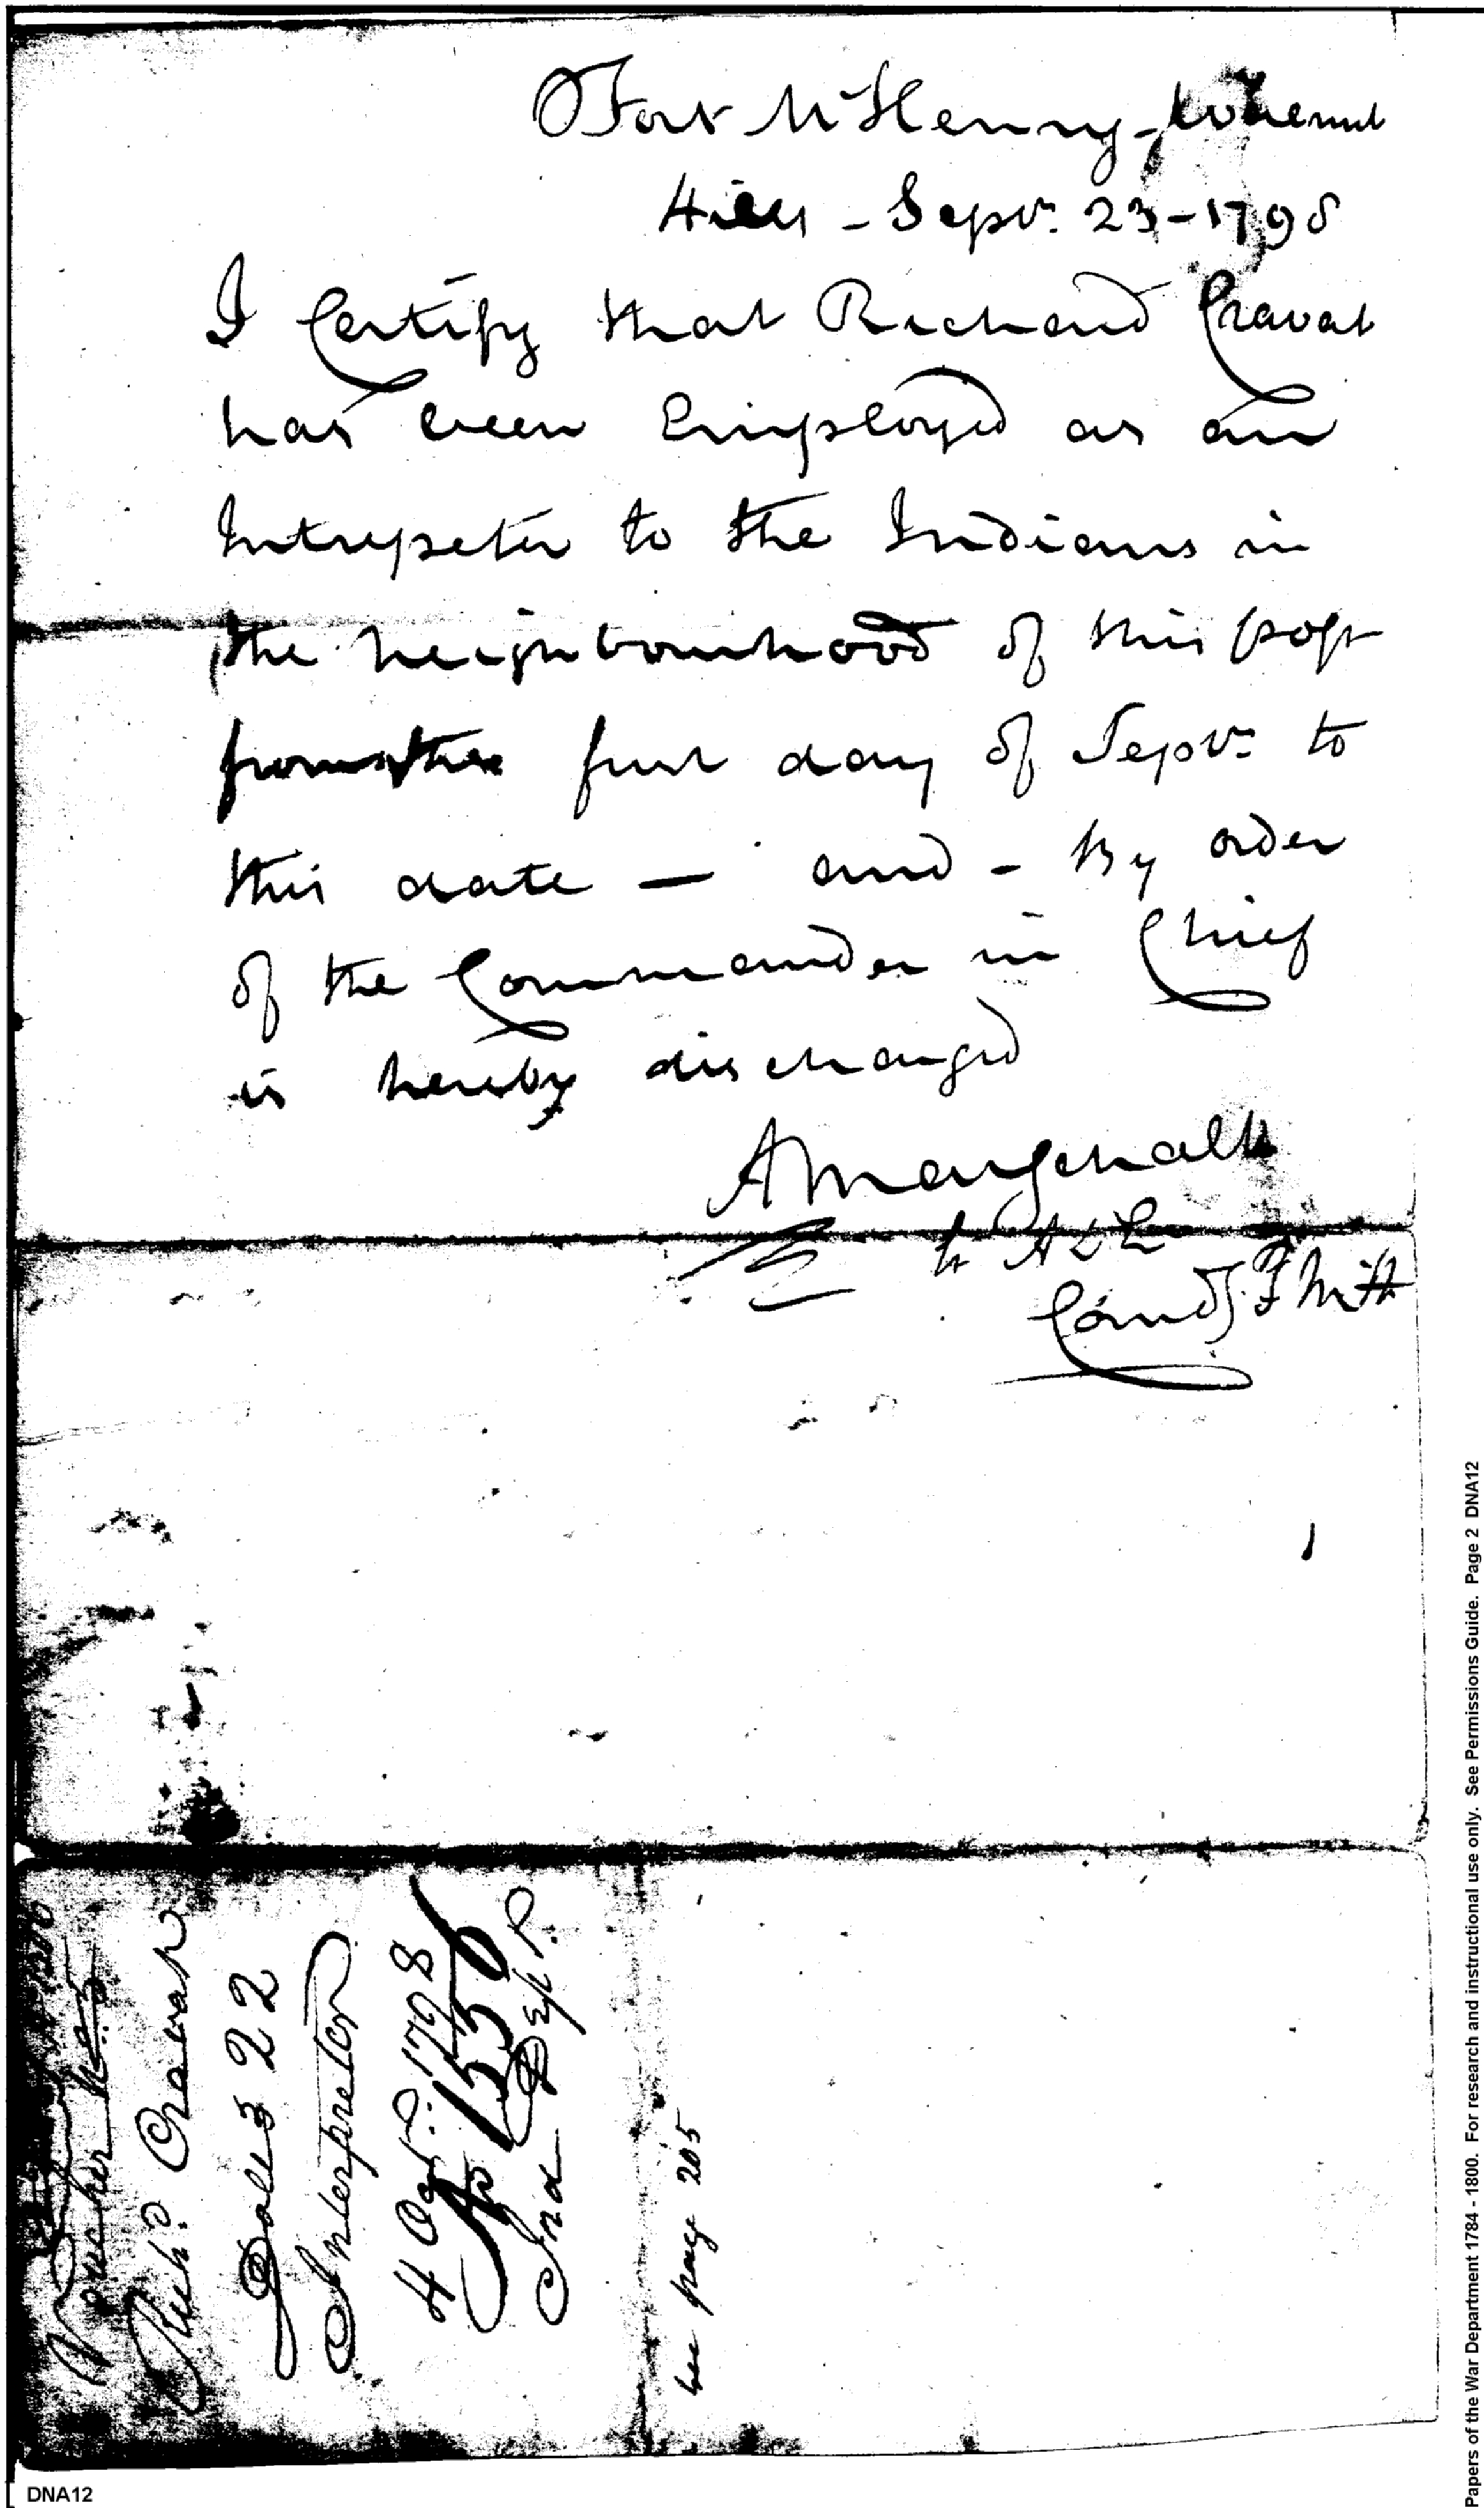 Fort McHenry - Walnut
Hills - Sepr. 23 - 1798
I Certify that Richard Cravat
has been Employed as an
Intrepeter to the Indians in
the neighbourhood of this post
from the first day of Sepr. to
this date — and - By order
of the Commander in Chief
is hereby discharged
A Marschalk
Lt
Comdg. F McH
Voucher No.
Richd. Cravat
Dolls 22
Interpreter
4 Oct. 1798
No 1556
Ind Dep P.
see page 205
DNA12
Papers of the War Department 1784 - 1800. For research and instructional use only. See Permissions Guide. Page 2 DNA12